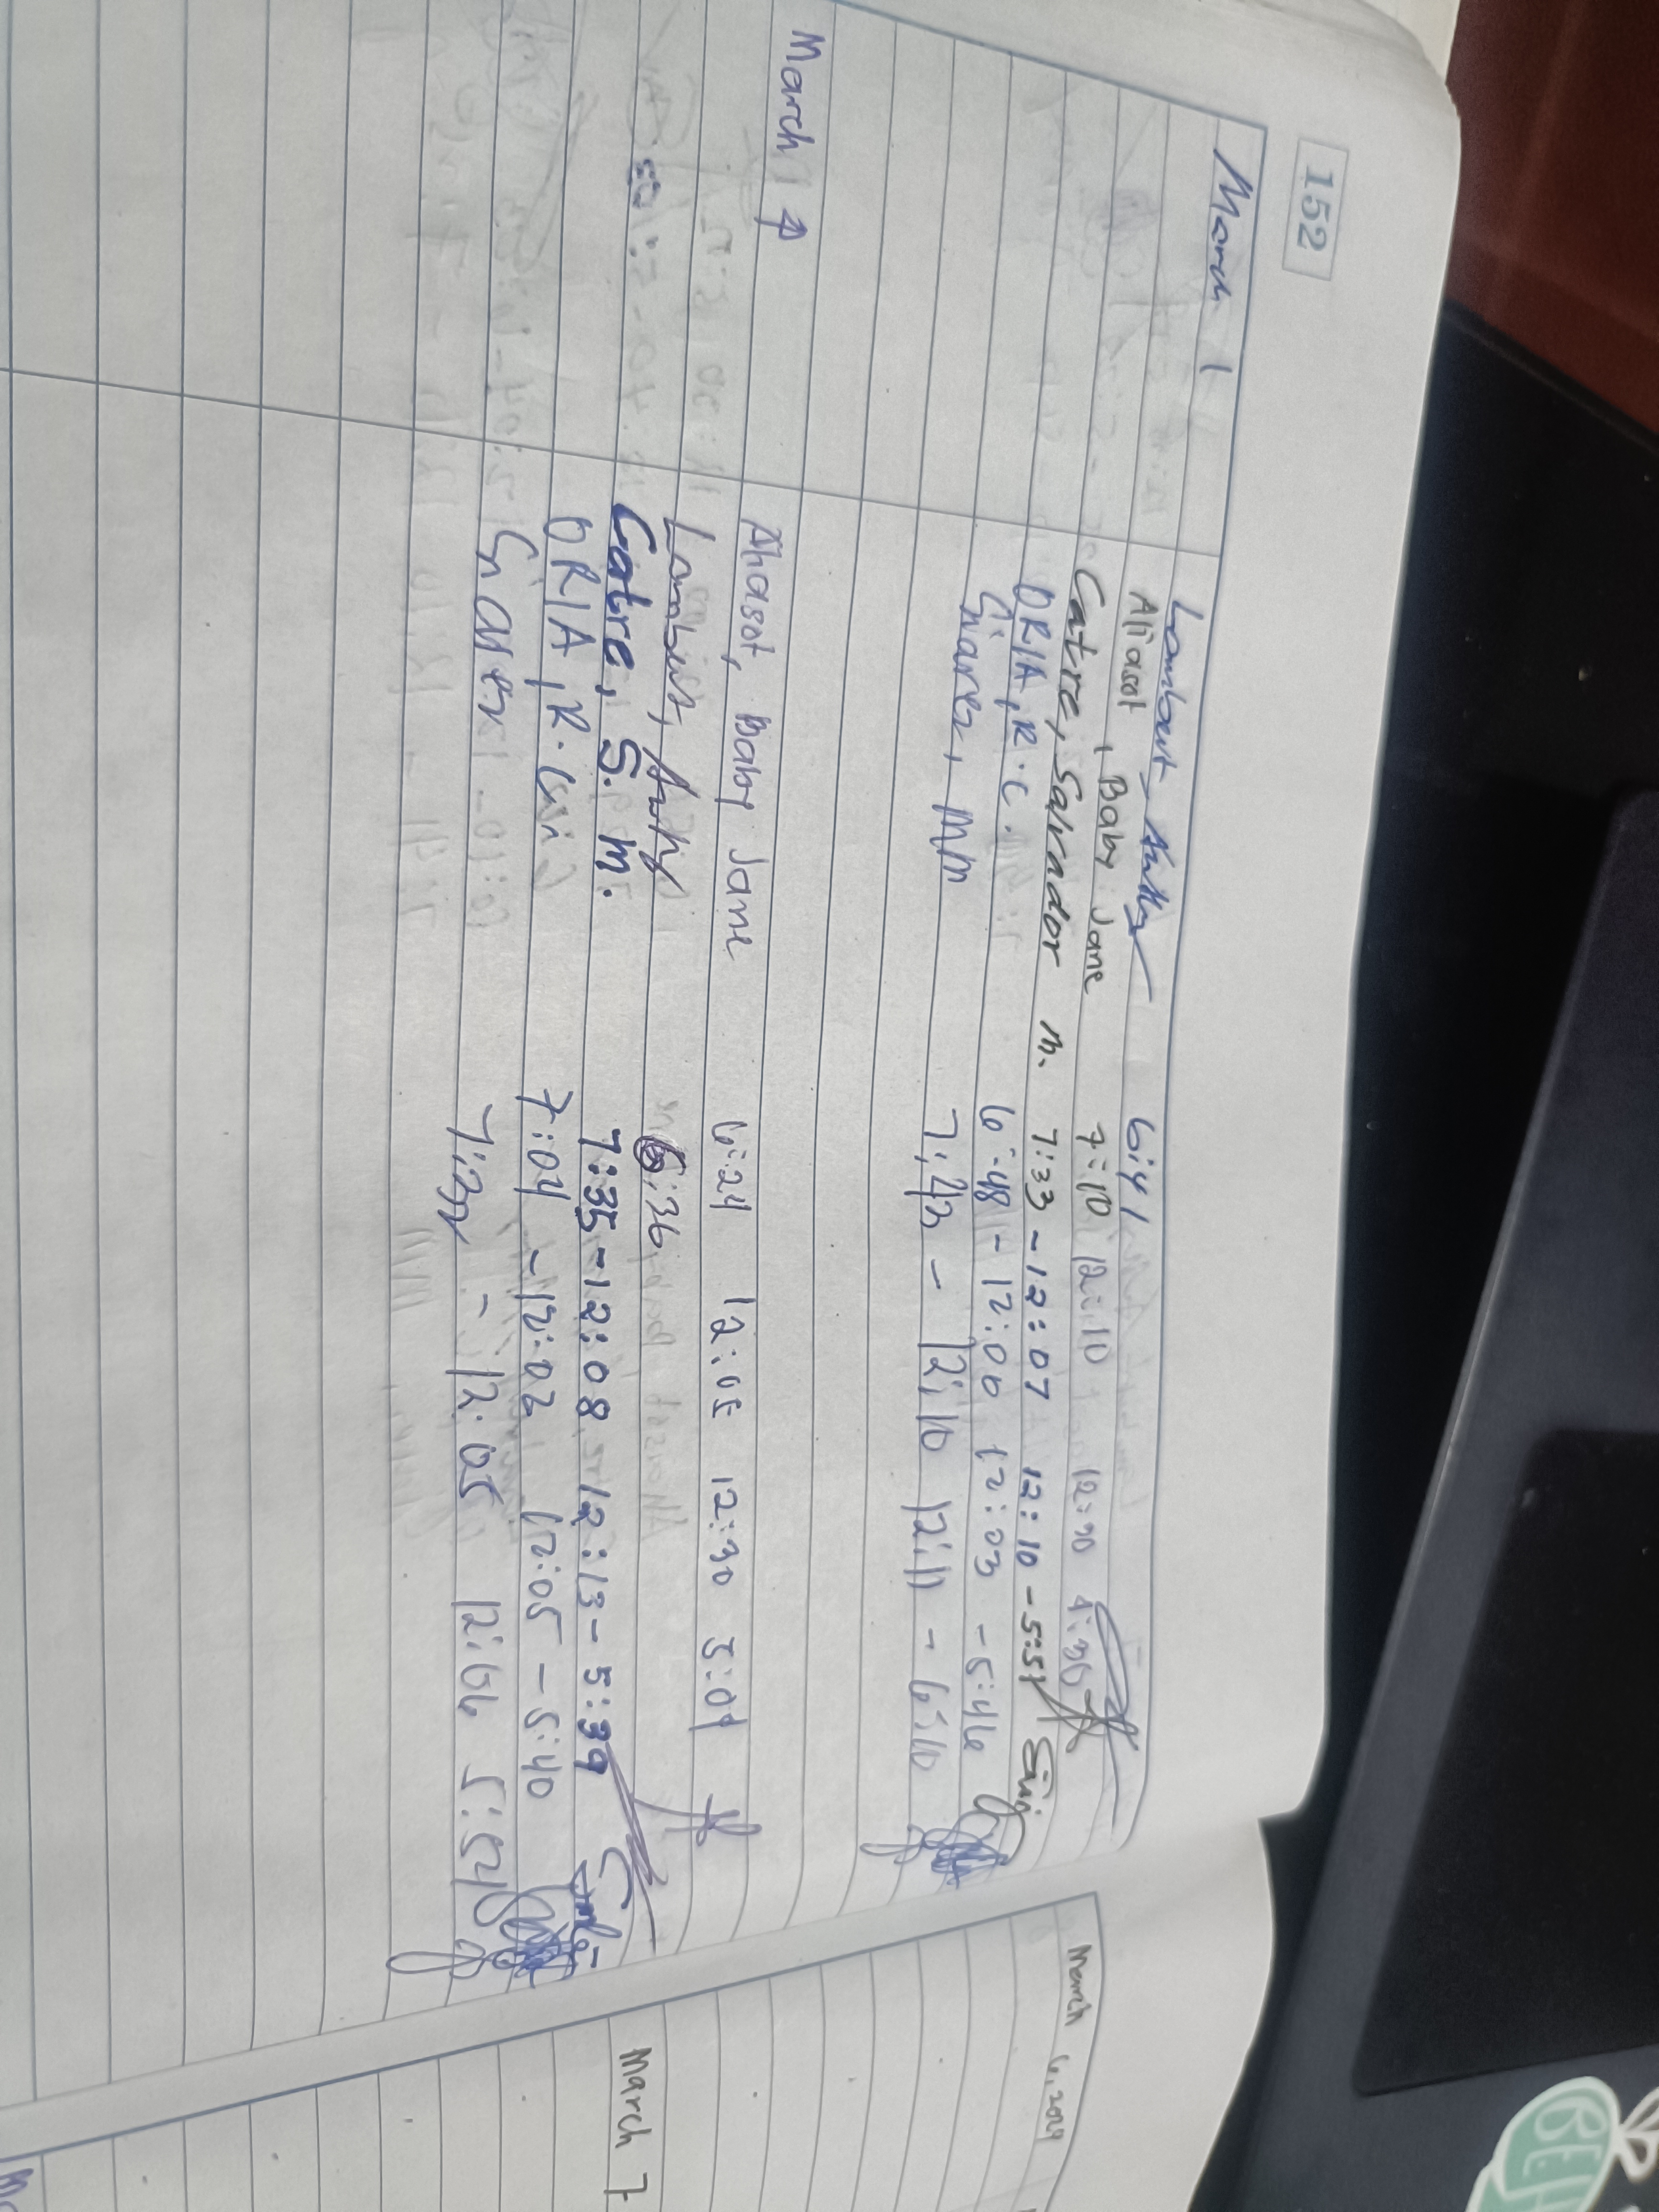 152
March 1
Lambert, 6:41
Aliasot, Baby Jane 7:10 12:10 12:30 4:30
Catre, Salvador M. 7:33 - 12:07 12:10 - 5:51
ORIA, R.C. 6:48 - 12:00 12:03 - 5:46
Suarez, MM 7:43 - 12:10 12:11 - 6:10
March
Aliasot, Baby Jane 6:24 12:05 12:30 5:01
Lambert, 6:36
Catre, S. M. 7:35 - 12:08 12:13 - 5:39
ORIA, R. 7:04 - 12:02 12:05 - 5:40
Suarez - 12:05 12:06 5:54
March 6, 2024
March 7
BEH